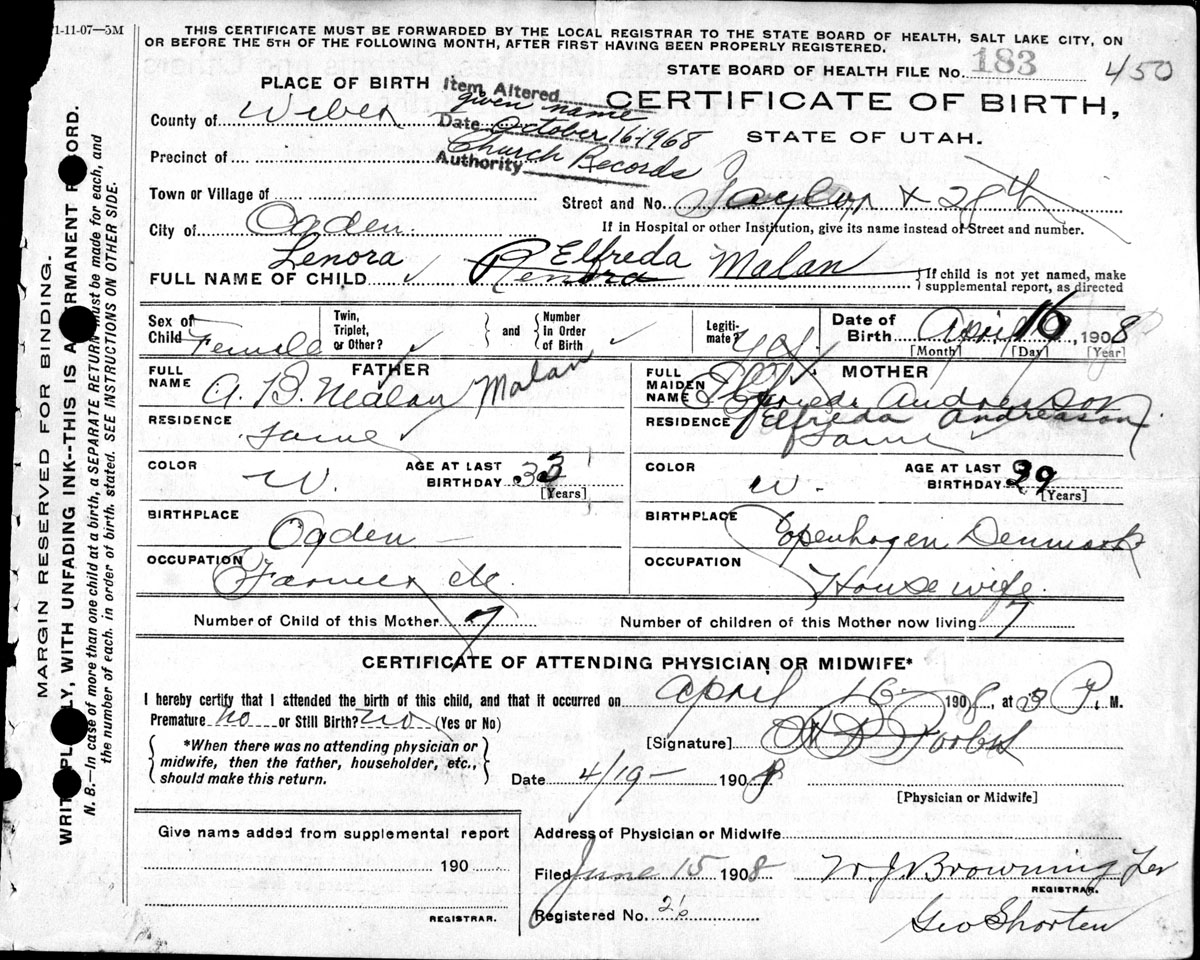 1-11-07—5M
THIS CERTIFICATE MUST BE FORWARDED BY THE LOCAL REGISTRAR TO THE STATE BOARD OF HEALTH, SALT LAKE CITY, ON
OR BEFORE THE 5TH OF THE FOLLOWING MONTH, AFTER FIRST HAVING BEEN PROPERLY REGISTERED.
STATE BOARD OF HEALTH FILE No. 183 450
PLACE OF BIRTH
Item Altered given name
Date October 16-1968
Authority Church Records
CERTIFICATE OF BIRTH,
STATE OF UTAH.
County of Weber
Precinct of
Town or Village of
Street and No. Taylor & 28th
City of Ogden
If in Hospital or other Institution, give its name instead of Street and number.
Lenora Elfreda
FULL NAME OF CHILD Renora Malan
If child is not yet named, make supplemental report, as directed
Sex of Child Female
Twin, Triplet, or Other?
and
Number in Order of Birth
Legitimate? Yes
Date of Birth April 16, 1908
[Month] [Day] [Year]
FATHER
FULL NAME A. B. Malan Malan
RESIDENCE Same
COLOR W.
AGE AT LAST BIRTHDAY 33
[Years]
BIRTHPLACE Ogden
OCCUPATION Farmer
MOTHER
FULL MAIDEN NAME Anderson
Elfreda Andreason
RESIDENCE Same
COLOR W.
AGE AT LAST BIRTHDAY 39
[Years]
BIRTHPLACE Copenhagen Denmark
OCCUPATION Housewife
Number of Child of this Mother 7
Number of children of this Mother now living 7
CERTIFICATE OF ATTENDING PHYSICIAN OR MIDWIFE*
I hereby certify that I attended the birth of this child, and that it occurred on April 16 1908, at 3 P. M.
Premature no or Still Birth? no (Yes or No)
*When there was no attending physician or midwife, then the father, householder, etc., should make this return.
[Signature]
Date 4/19- 1908
[Physician or Midwife]
Give name added from supplemental report
190
REGISTRAR.
Address of Physician or Midwife
Filed June 15 1908
W. J. Browning
REGISTRAR.
Registered No.
Geo Shorten
MARGIN RESERVED FOR BINDING.
WRITE PLAINLY, WITH UNFADING INK--THIS IS A PERMANENT RECORD.
N. B.—In case of more than one child at a birth, a SEPARATE RETURN must be made for each, and
the number of each, in order of birth, stated. SEE INSTRUCTIONS ON OTHER SIDE.